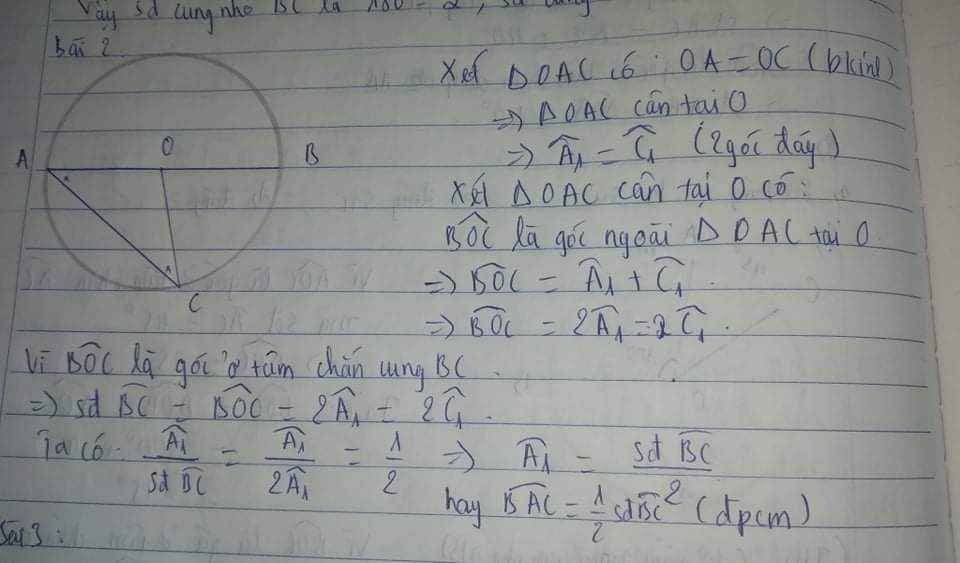 Vậy sđ cung nhỏ BC là
Bài 2.
A
O
B
C
Xét ΔOAC có: OA = OC (bkính)
=> ΔOAC cân tại O
=> Â₁ = Ĉ₁ (2 góc đáy)
Xét ΔOAC cân tại O có:
BÔC là góc ngoài ΔOAC tại O
=> BÔC = Â₁ + Ĉ₁.
=> BÔC = 2Â₁ = 2Ĉ₁.
Vì BÔC là góc ở tâm chắn cung BC.
=> sđ BC = BÔC = 2Â₁ = 2Ĉ₁.
Ta có: Â₁/sđ BC = Â₁/2Â₁ = 1/2 => Â₁ = sđ BC/2
hay BÂC = 1/2 sđ BC (đpcm)
Bài 3: